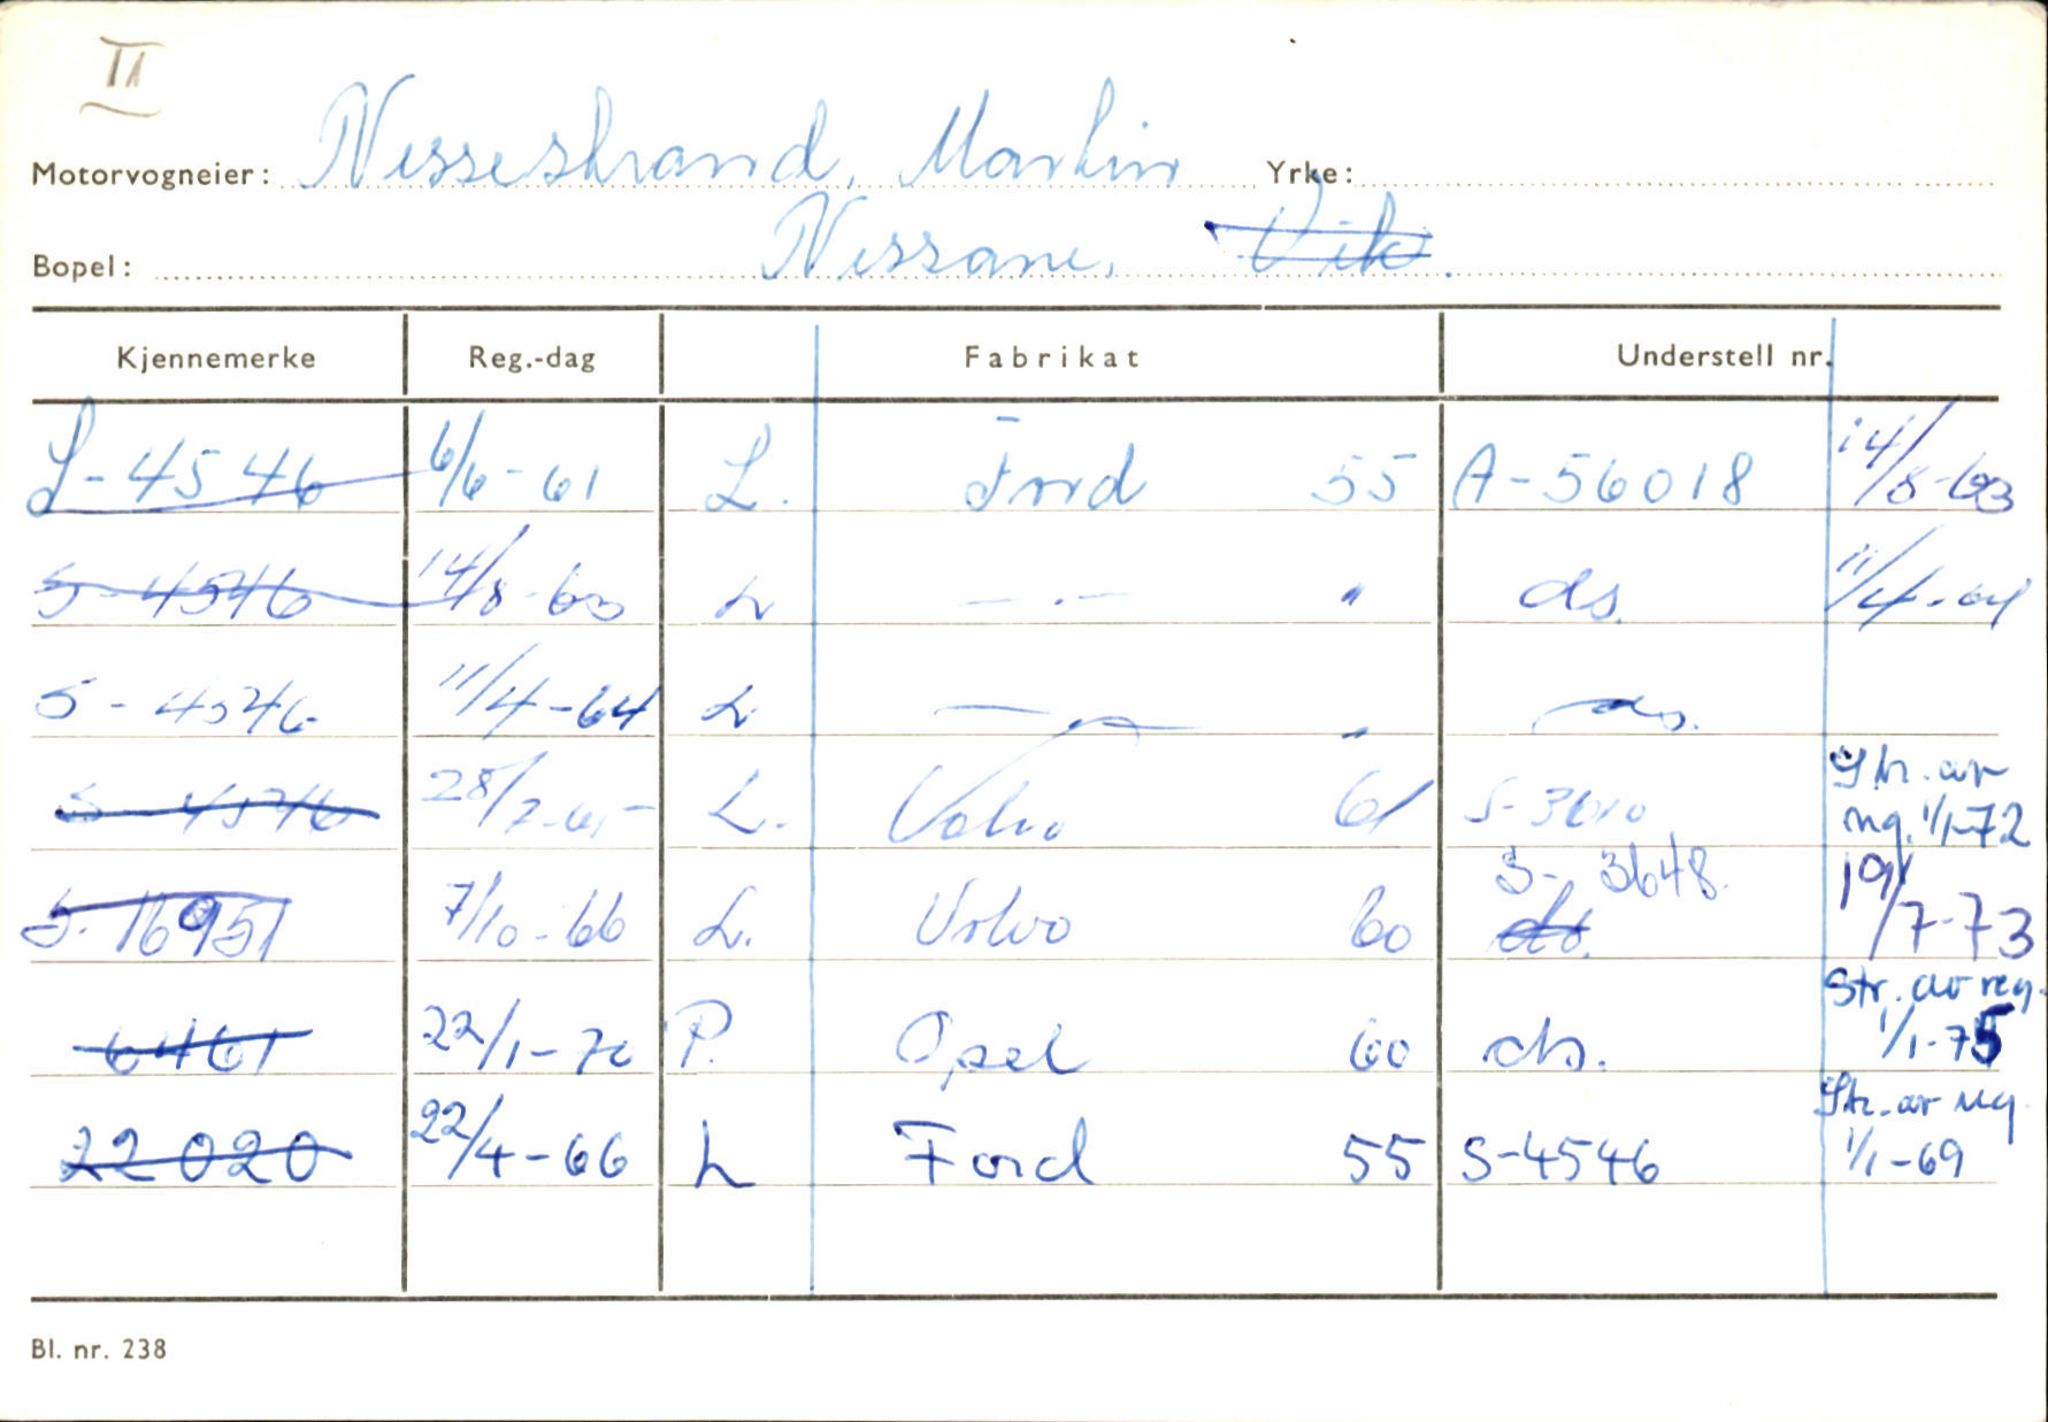 II
Motorvogneier: Nessestrand, Martin Yrke:
Bopel: Nessane, Vik.
Kjennemerke Reg.-dag Fabrikat Understell nr.
S-4546 6/6-61 L. Ford 55 A-56018 14/8-63
S-4546 14/8-63 L —.— " ds. 11/4-64
S-4546 11/4-64 L " ds.
S-4546 28/7-65 L. Volvo 61 Str. av
reg. 1/1-72
S-3648.
S-16951 7/10-66 L. Volvo 60 ds. 19/7-73
Str. av reg.
6461 22/1-70 P. Opel 60 ds. 1/1-75
Str. av reg.
22020 22/4-66 L Ford 55 S-4546 1/1-69
Bl. nr. 238